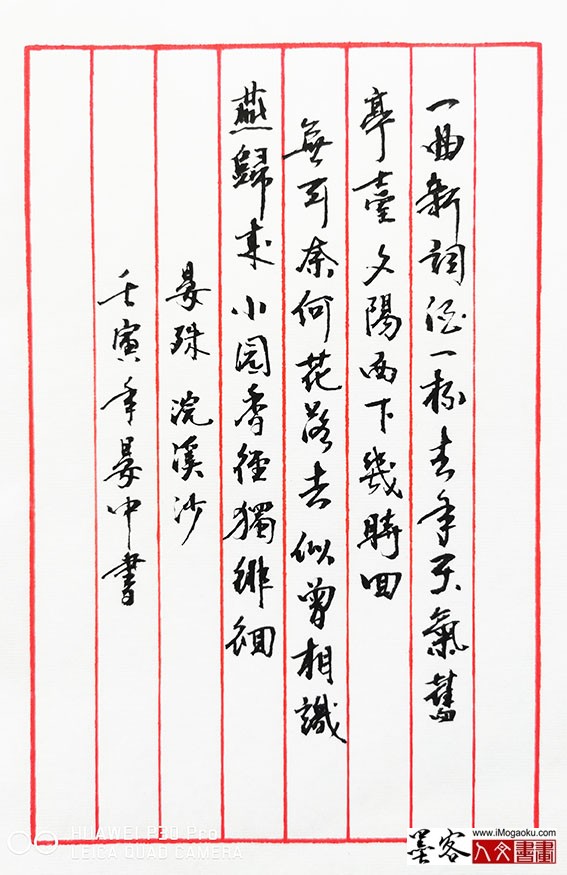 一曲新詞酒一杯去年天氣舊
亭臺夕陽西下幾時回
無可奈何花落去似曾相識
燕歸來小園香徑獨徘徊
晏殊 浣溪沙
壬寅年晏中書
HUAWEI P30 Pro
LEICA QUAD CAMERA
墨客
www.iMogaoku.com
人文書畫